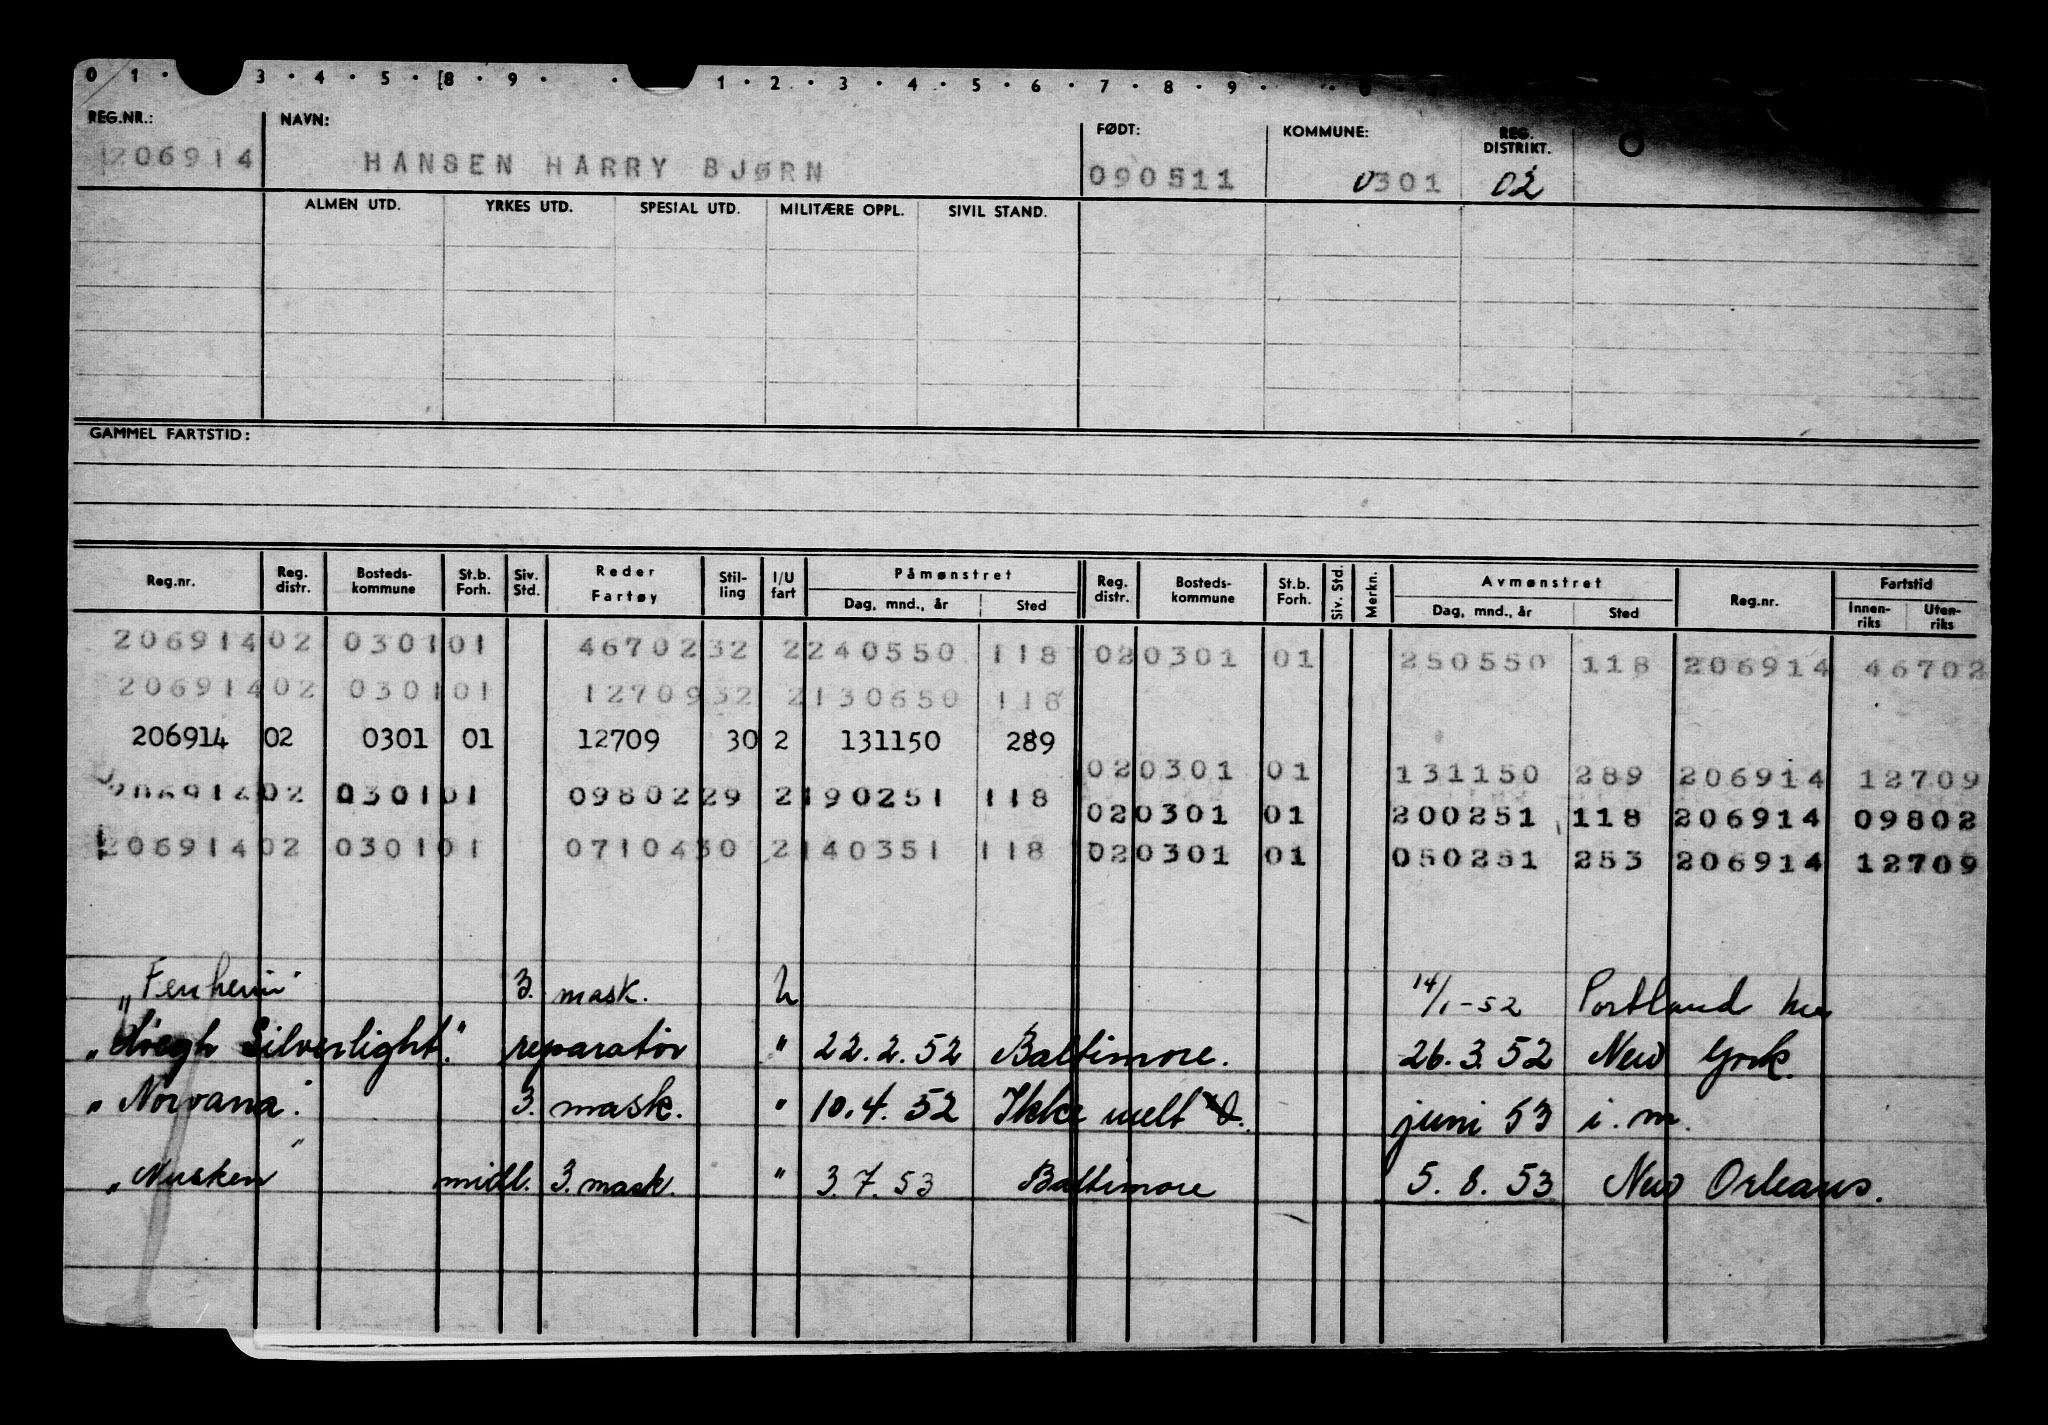 0 1 · 3 · 4 · 5 · [8 · 9 · · 1 · 2 · 3 · 4 · 5 · 6 · 7 · 8 · 9 ·
REG.NR.: NAVN: FØDT: KOMMUNE: REG. DISTRIKT.
206914 HANSEN HARRY BJØRN 090511 0301 02
ALMEN UTD. YRKES UTD. SPESIAL UTD. MILITÆRE OPPL. SIVIL STAND.
GAMMEL FARTSTID:
Reg.nr. Reg. distr. Bosteds-kommune St.b. Forh. Siv. Std. Reder Fartøy Stil-ling I/U fart Påmønstret Dag, mnd., år Sted Reg. distr. Bosteds-kommune St.b. Forh. Siv. Std. Merkn. Avmønstret Dag, mnd., år Sted Reg.nr. Fartstid Innen-riks Uten-riks
206914 02 0301 01 46702 32 2 240550 118 02 0301 01 250550 118 206914 46702
206914 02 0301 01 12709 32 2 130650 118
206914 02 0301 01 12709 30 2 131150 289
02 0301 01 131150 289 206914 12709
206914 02 0301 01 09802 29 2 190251 118
02 0301 01 200251 118 206914 09802
206914 02 0301 01 07104 30 2 140351 118
02 0301 01 050251 253 206914 12709
3. mask. 14/1-52 Portland
Silverlight" reparatør " 22.2.52 Baltimore. 26.3.52 New York.
"Norvana". 3. mask. " 10.4.52 Ikke juni 53 i.m.
"Nusken" midl. 3. mask. " 3.7.53 Baltimore 5.8.53 New Orleans.